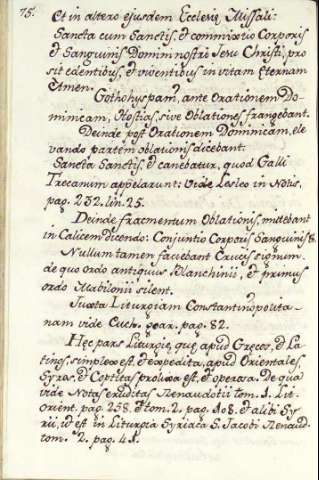 75.
Et in altero ejusdem Ecclesię Missali:
Sancta cum Sanctis, et commixtio Corporis
et Sanguinis Domini nostri Jesu Christi, pro
sit edentibus, et viventibus in vitam Eternam
Amen.
Gothohyspam, ante Orationem Do-
minicam, Hostias, sive Oblationes frangebant.
Deinde post Orationem Dominicam, ele
vando partem oblationis dicebant:
Sancta Sanctis, et canebatur, quod Galli
Trecanum appelarunt: Vide Lesleo in Notis,
pag. 232. lin. 25.
Deinde fracmentum Oblationis, mittebant
in Calicem dicendo: Conjuntio Corporis Sanguinis &.
Nullum tamen faciebant Crucis signum,
de quo Ordo antiquus Blanchinii, et primus
ordo Mabilonii silent.
Juxta Liturgiam Constantinopolita-
nam vide Euch. goar. pag. 82.
Hęc pars Liturgię, quę apud Gręcos, et La-
tinos, simplex est, et expedita, apud Orientales,
Syros, et Coptitas prolixa est, et operosa. De qua
vide Notas eruditas Renaudotii tom. 1. Lit.
Orient. pag. 258. et tom. 2. pag. 108. et alibi Sy
rii, ut est in Liturgia Syriaca S. Jacobi Renaud.
tom. 2. pag. 41.